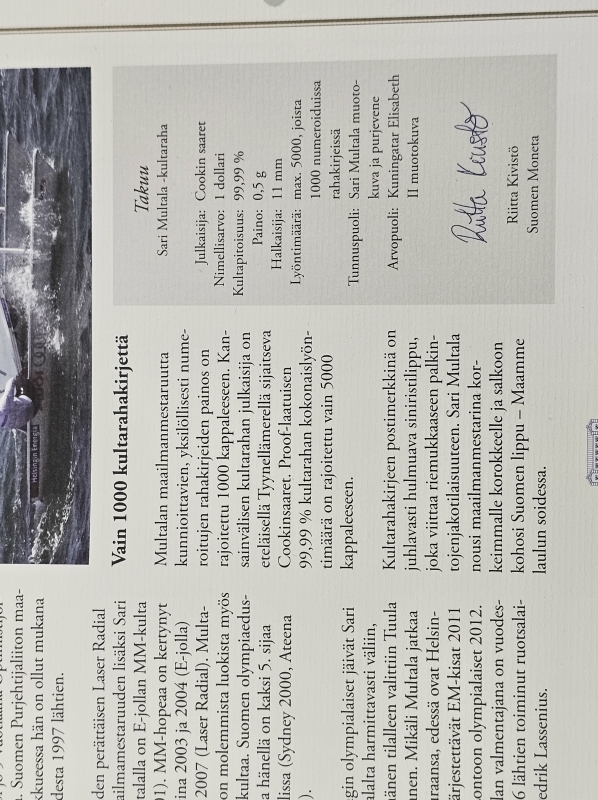 . Suomen Purjehtijaliiton maa-
kkueessa hän on ollut mukana
desta 1997 lähtien.
den perättäisen Laser Radial
ailmamestaruuden lisäksi Sari
talalla on E-jollan MM-kulta
01). MM-hopeaa on kertynyt
ina 2003 ja 2004 (E-jolla)
2007 (Laser Radial). Multa-
on molemmista luokista myös
kultaa. Suomen olympiaedus-
a hänellä on kaksi 5. sijaa
lissa (Sydney 2000, Ateena
).
gin olympialaiset jäivät Sari
alalta harmittavasti väliin,
änen tilalleen valittiin Tuula
nen. Mikäli Multala jatkaa
raansa, edessä ovat Helsin-
ärjestettävät EM-kisat 2011
ontoon olympialaiset 2012.
lan valmentajana on vuodes-
6 lähtien toiminut ruotsalai-
edrik Lassenius.
Helsingin Energia
Vain 1000 kultarahakirjettä
Multalan maailmanmestaruutta
kunnioittavien, yksilöllisesti nume-
roitujen rahakirjeiden painos on
rajoitettu 1000 kappaleeseen. Kan-
sainvälisen kultarahan julkaisija on
eteläisellä Tyynellämerellä sijaitseva
Cookinsaaret. Proof-laatuisen
99,99 % kultarahan kokonaislyön-
timäärä on rajoitettu vain 5000
kappaleeseen.
Kultarahakirjeen postimerkkinä on
juhlavasti hulmuava siniristilippu,
joka viittaa riemukkaaseen palkin-
tojenjakotilaisuuteen. Sari Multala
nousi maailmanmestarina kor-
keimmalle korokkeelle ja salkoon
kohosi Suomen lippu – Maamme
laulun soidessa.
Takuu
Sari Multala -kultaraha
Julkaisija: Cookin saaret
Nimellisarvo: 1 dollari
Kultapitoisuus: 99,99 %
Paino: 0,5 g
Halkaisija: 11 mm
Lyöntimäärä: max. 5000, joista
1000 numeroiduissa
rahakirjeissä
Tunnuspuoli: Sari Multala muoto-
kuva ja purjevene
Arvopuoli: Kuningatar Elisabeth
II muotokuva
Riitta Kivistö
Riitta Kivistö
Suomen Moneta